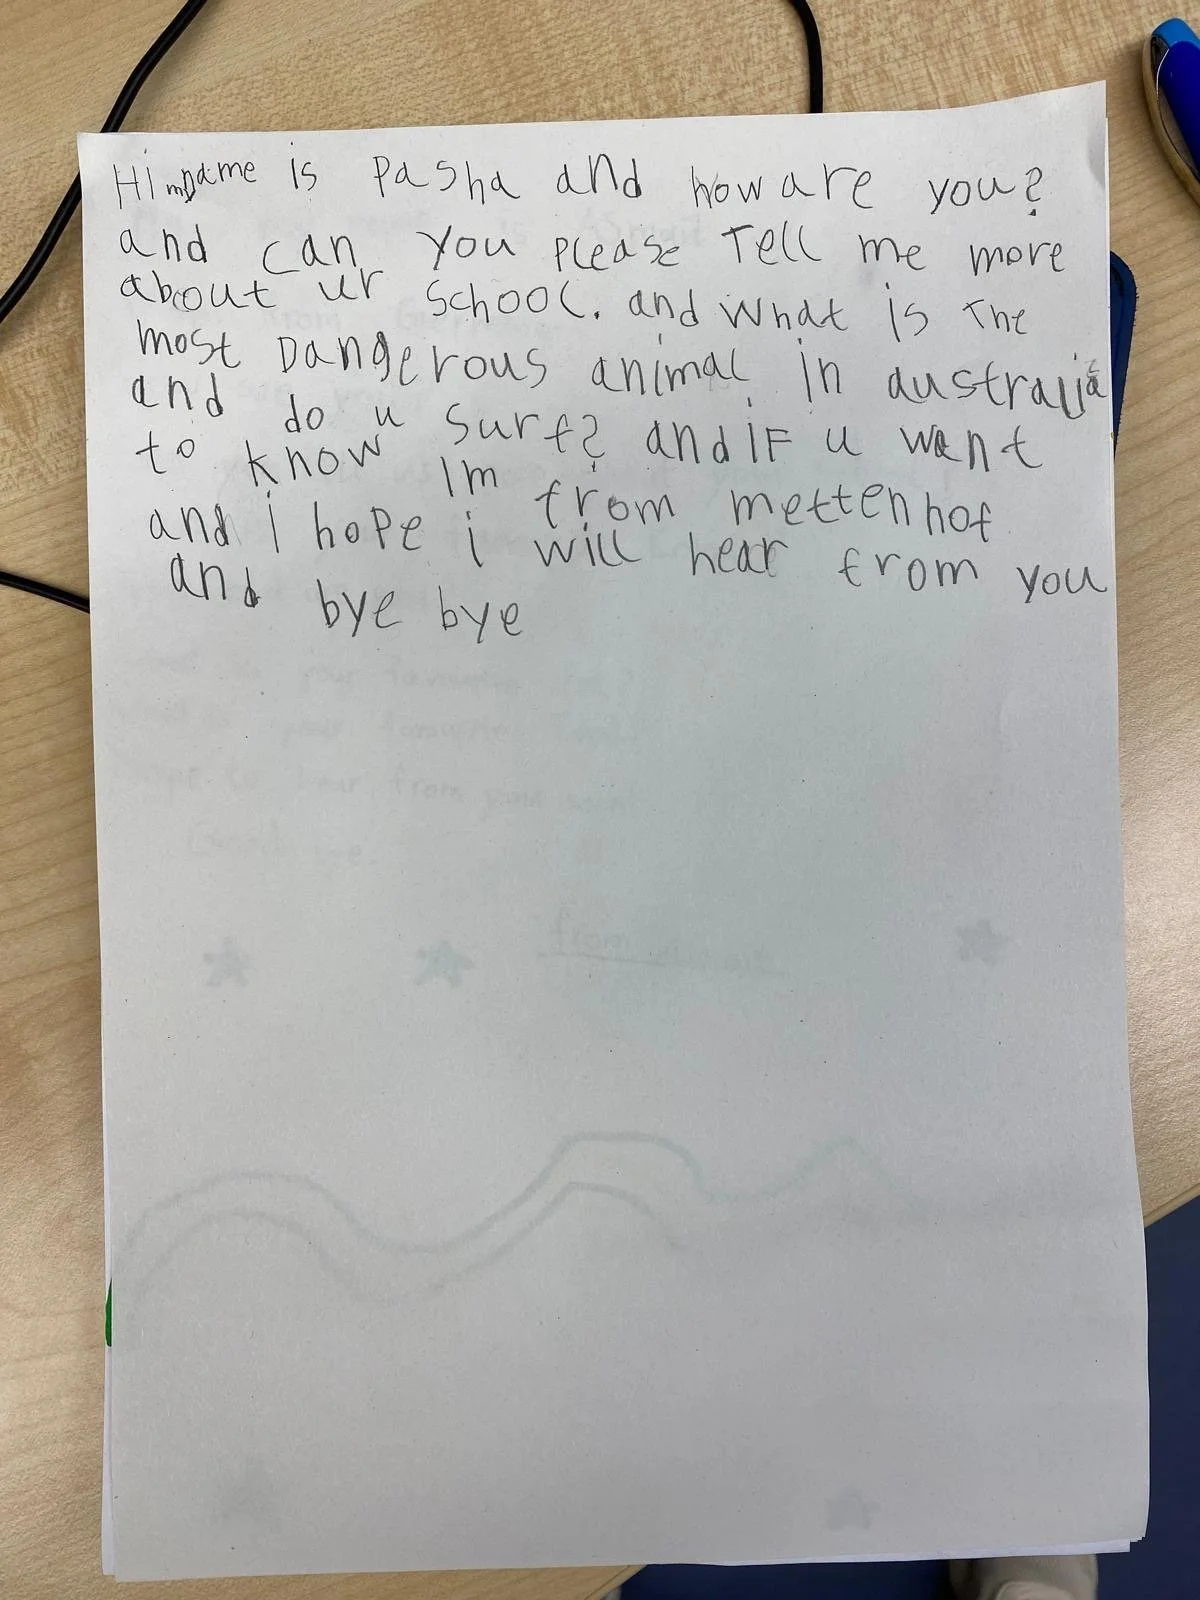 Hi my name is Pasha and how are you?
and can you please Tell me more
about ur school. and what is the
most Dangerous animal in australia
and do u surf? and iF u want
to know Im from mettenhof
and i hope i will hear from you
and bye bye